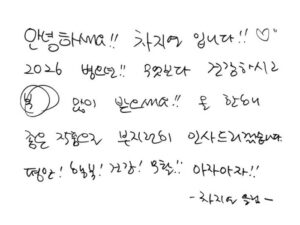 안녕하세요!! 차지연 입니다!! ♡
2026 병오년!! 무엇보다 건강하시고
복 많이 받으세요!! 올 한해
좋은 작품으로 부지런히 인사드리겠습니다.
평안! 행복! 건강! 무탈!! 아자아자!!
- 차지연 올림 -